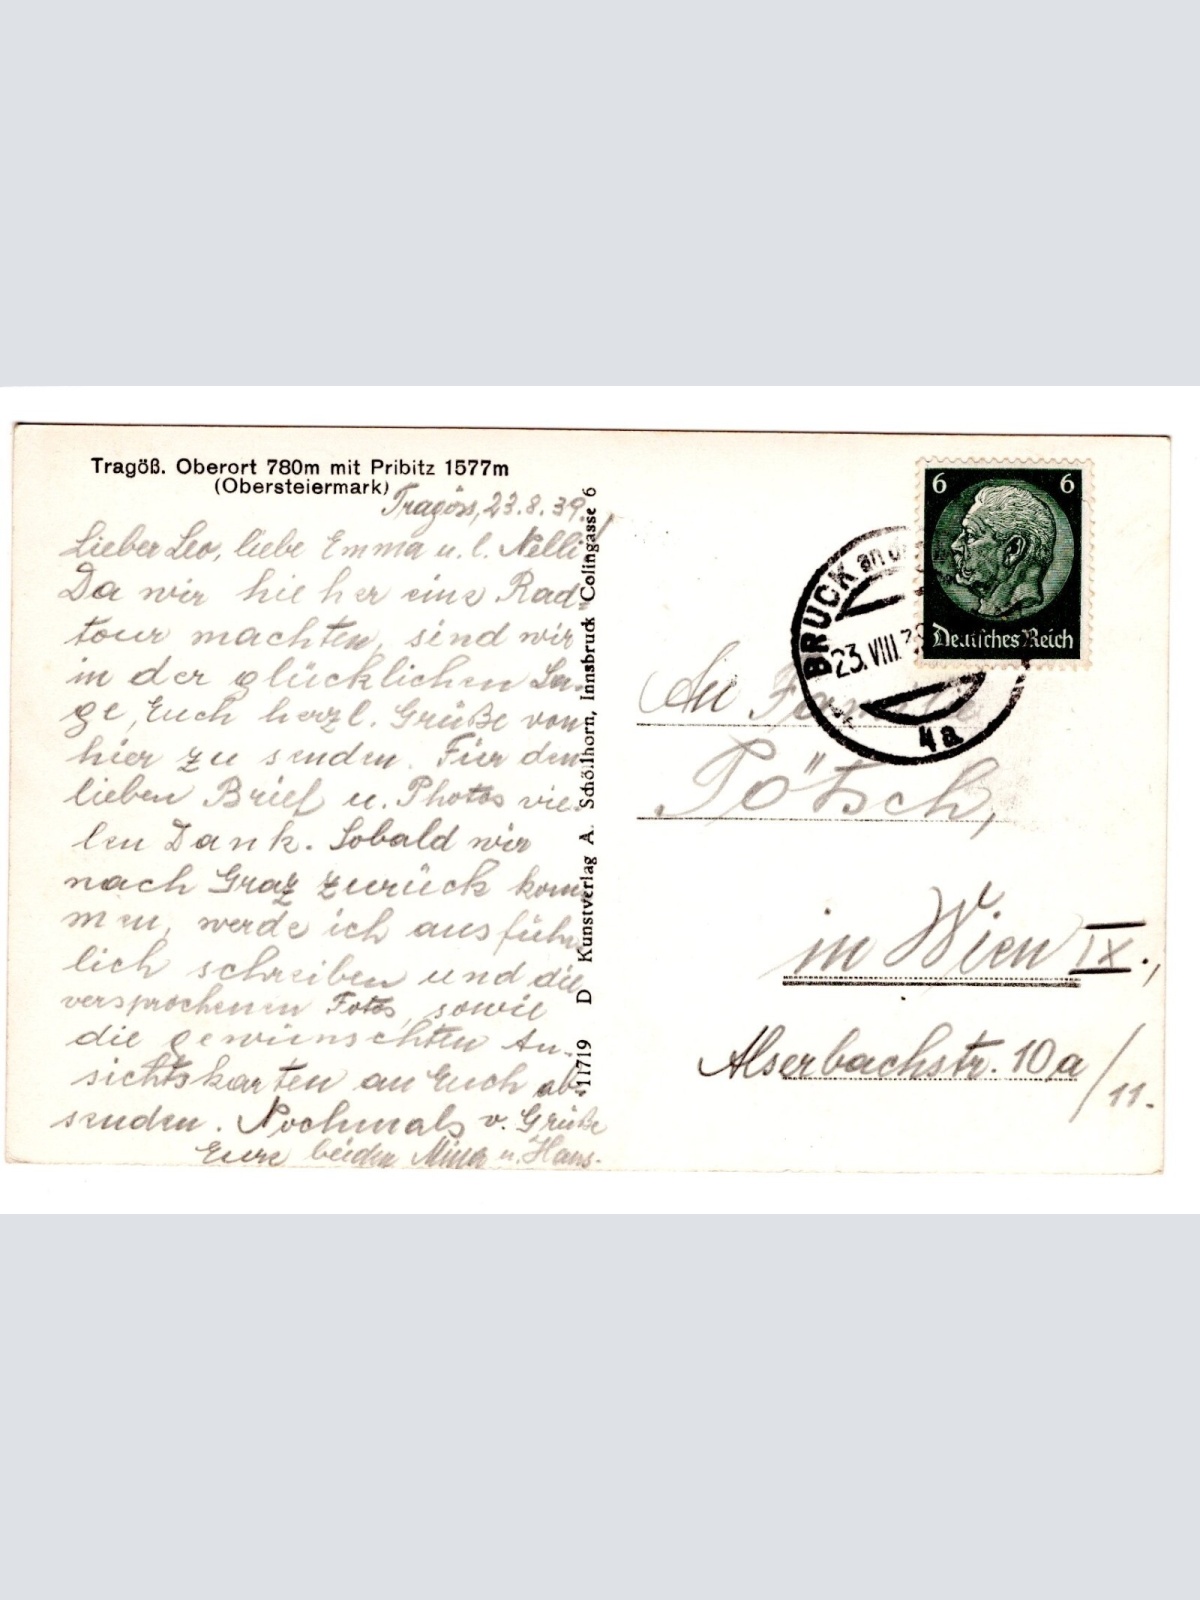 Tragöß. Oberort 780m mit Pribitz 1577m
(Obersteiermark)
Tragöss, 23.8.39.
Lieber Leo, liebe Emma u. l. Nelli!
Da wir hieher eine Rad-
tour machten, sind wir
in der glücklichen La-
ge, Euch herzl. Grüße von
hier zu senden. Für den
lieben Brief u. Photos vie-
len Dank. Sobald wir
nach Graz zurück kom-
men, werde ich ausführ-
lich schreiben und die
versprochenen Fotos, sowie
die gewünschten An-
sichtskarten an Euch ab-
senden. Nochmals v. Grüße
Eure beiden Minna u. Hans.
11719 D Kunstverlag A. Schöllhorn, Innsbruck Colingasse 6
6 6
Deutsches Reich
BRUCK an der
23.VIII.39
4a
An Familie
Pötsch,
in Wien IX.,
Alserbachstr. 10a/11.